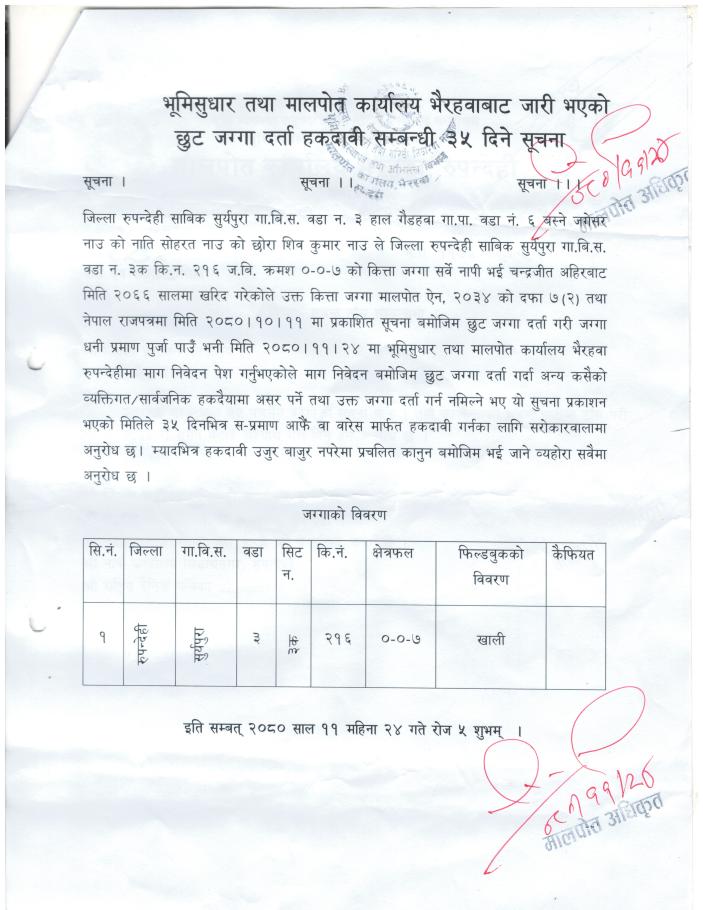 भूमिसुधार तथा मालपोत कार्यालय भैरहवाबाट जारी भएको
छुट जग्गा दर्ता हकदावी सम्बन्धी ३५ दिने सूचना
सूचना । सूचना ।। सूचना ।।।
जिल्ला रुपन्देही साविक सुर्यपुरा गा.वि.स. वडा न. ३ हाल गैडहवा गा.पा. वडा नं. ६ बस्ने जगेसर
नाउ को नाति सोहरत नाउ को छोरा शिव कुमार नाउ ले जिल्ला रुपन्देही साविक सुर्यपुरा गा.वि.स.
वडा न. ३क कि.न. २१६ ज.वि. क्रमश ०-०-७ को कित्ता जग्गा सर्वे नापी भई चन्द्रजीत अहिरबाट
मिति २०६६ सालमा खरिद गरेकोले उक्त कित्ता जग्गा मालपोत ऐन, २०३४ को दफा ७(२) तथा
नेपाल राजपत्रमा मिति २०८०।१०।११ मा प्रकाशित सूचना बमोजिम छुट जग्गा दर्ता गरी जग्गा
धनी प्रमाण पुर्जा पाउँ भनी मिति २०८०।११।२४ मा भूमिसुधार तथा मालपोत कार्यालय भैरहवा
रुपन्देहीमा माग निवेदन पेश गर्नुभएकोले माग निवेदन बमोजिम छुट जग्गा दर्ता गर्दा अन्य कसैको
व्यक्तिगत/सार्वजनिक हकदैयामा असर पर्ने तथा उक्त जग्गा दर्ता गर्न नमिल्ने भए यो सुचना प्रकाशन
भएको मितिले ३५ दिनभित्र स-प्रमाण आफैं वा बारेस मार्फत हकदावी गर्नका लागि सरोकारवालामा
अनुरोध छ। म्यादभित्र हकदावी उजुर बाजुर नपरेमा प्रचलित कानुन बमोजिम भई जाने व्यहोरा सवैमा
अनुरोध छ ।
जग्गाको विवरण
सि.नं. जिल्ला गा.वि.स. वडा सिट न. कि.नं. क्षेत्रफल फिल्डबुकको विवरण कैफियत
१ रुपन्देही सुर्यपुरा ३ ३क २१६ ०-०-७ खाली
इति सम्बत् २०८० साल ११ महिना २४ गते रोज ५ शुभम् ।
मालपोत अधिकृत
मालपोत अधिकृत